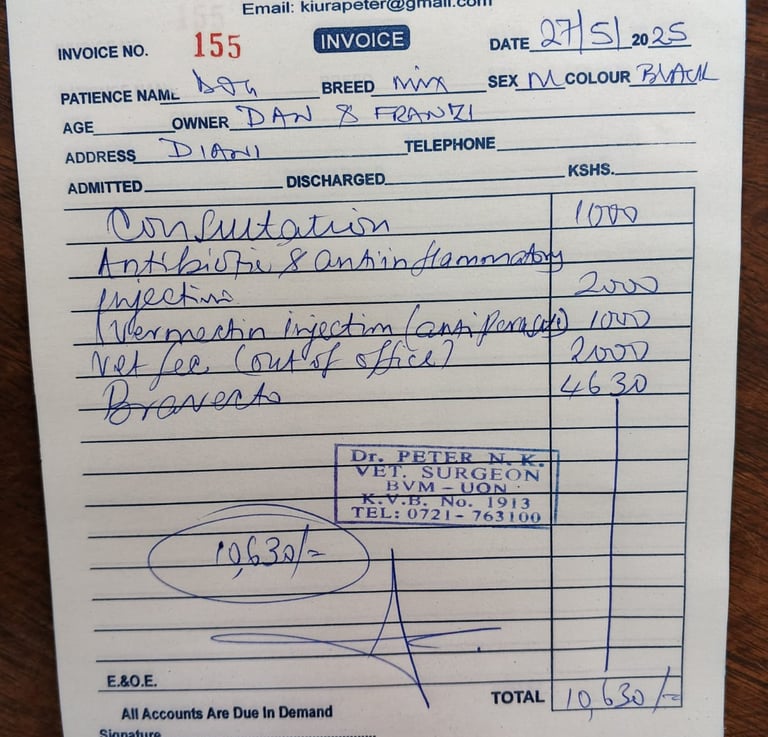 Email: kiurapeter@gmail.com
INVOICE NO. 155 INVOICE DATE 27/5/2025
PATIENCE NAME Dog BREED Mix SEX M COLOUR BLACK
AGE OWNER DAN & FRANZI
ADDRESS DIANI TELEPHONE
ADMITTED DISCHARGED KSHS.
Consultation 1000
Antibiotic & antiinflammatory
injection 2000
Ivermectin injection (antiparasite) 1000
Vet fee (out of office) 2000
Bravecto 4630
Dr. PETER N. K.
VET. SURGEON
BVM - UON
K.V.B. No. 1913
TEL: 0721-763100
10,630/=
E.&O.E.
TOTAL 10,630/=
All Accounts Are Due In Demand
Signature